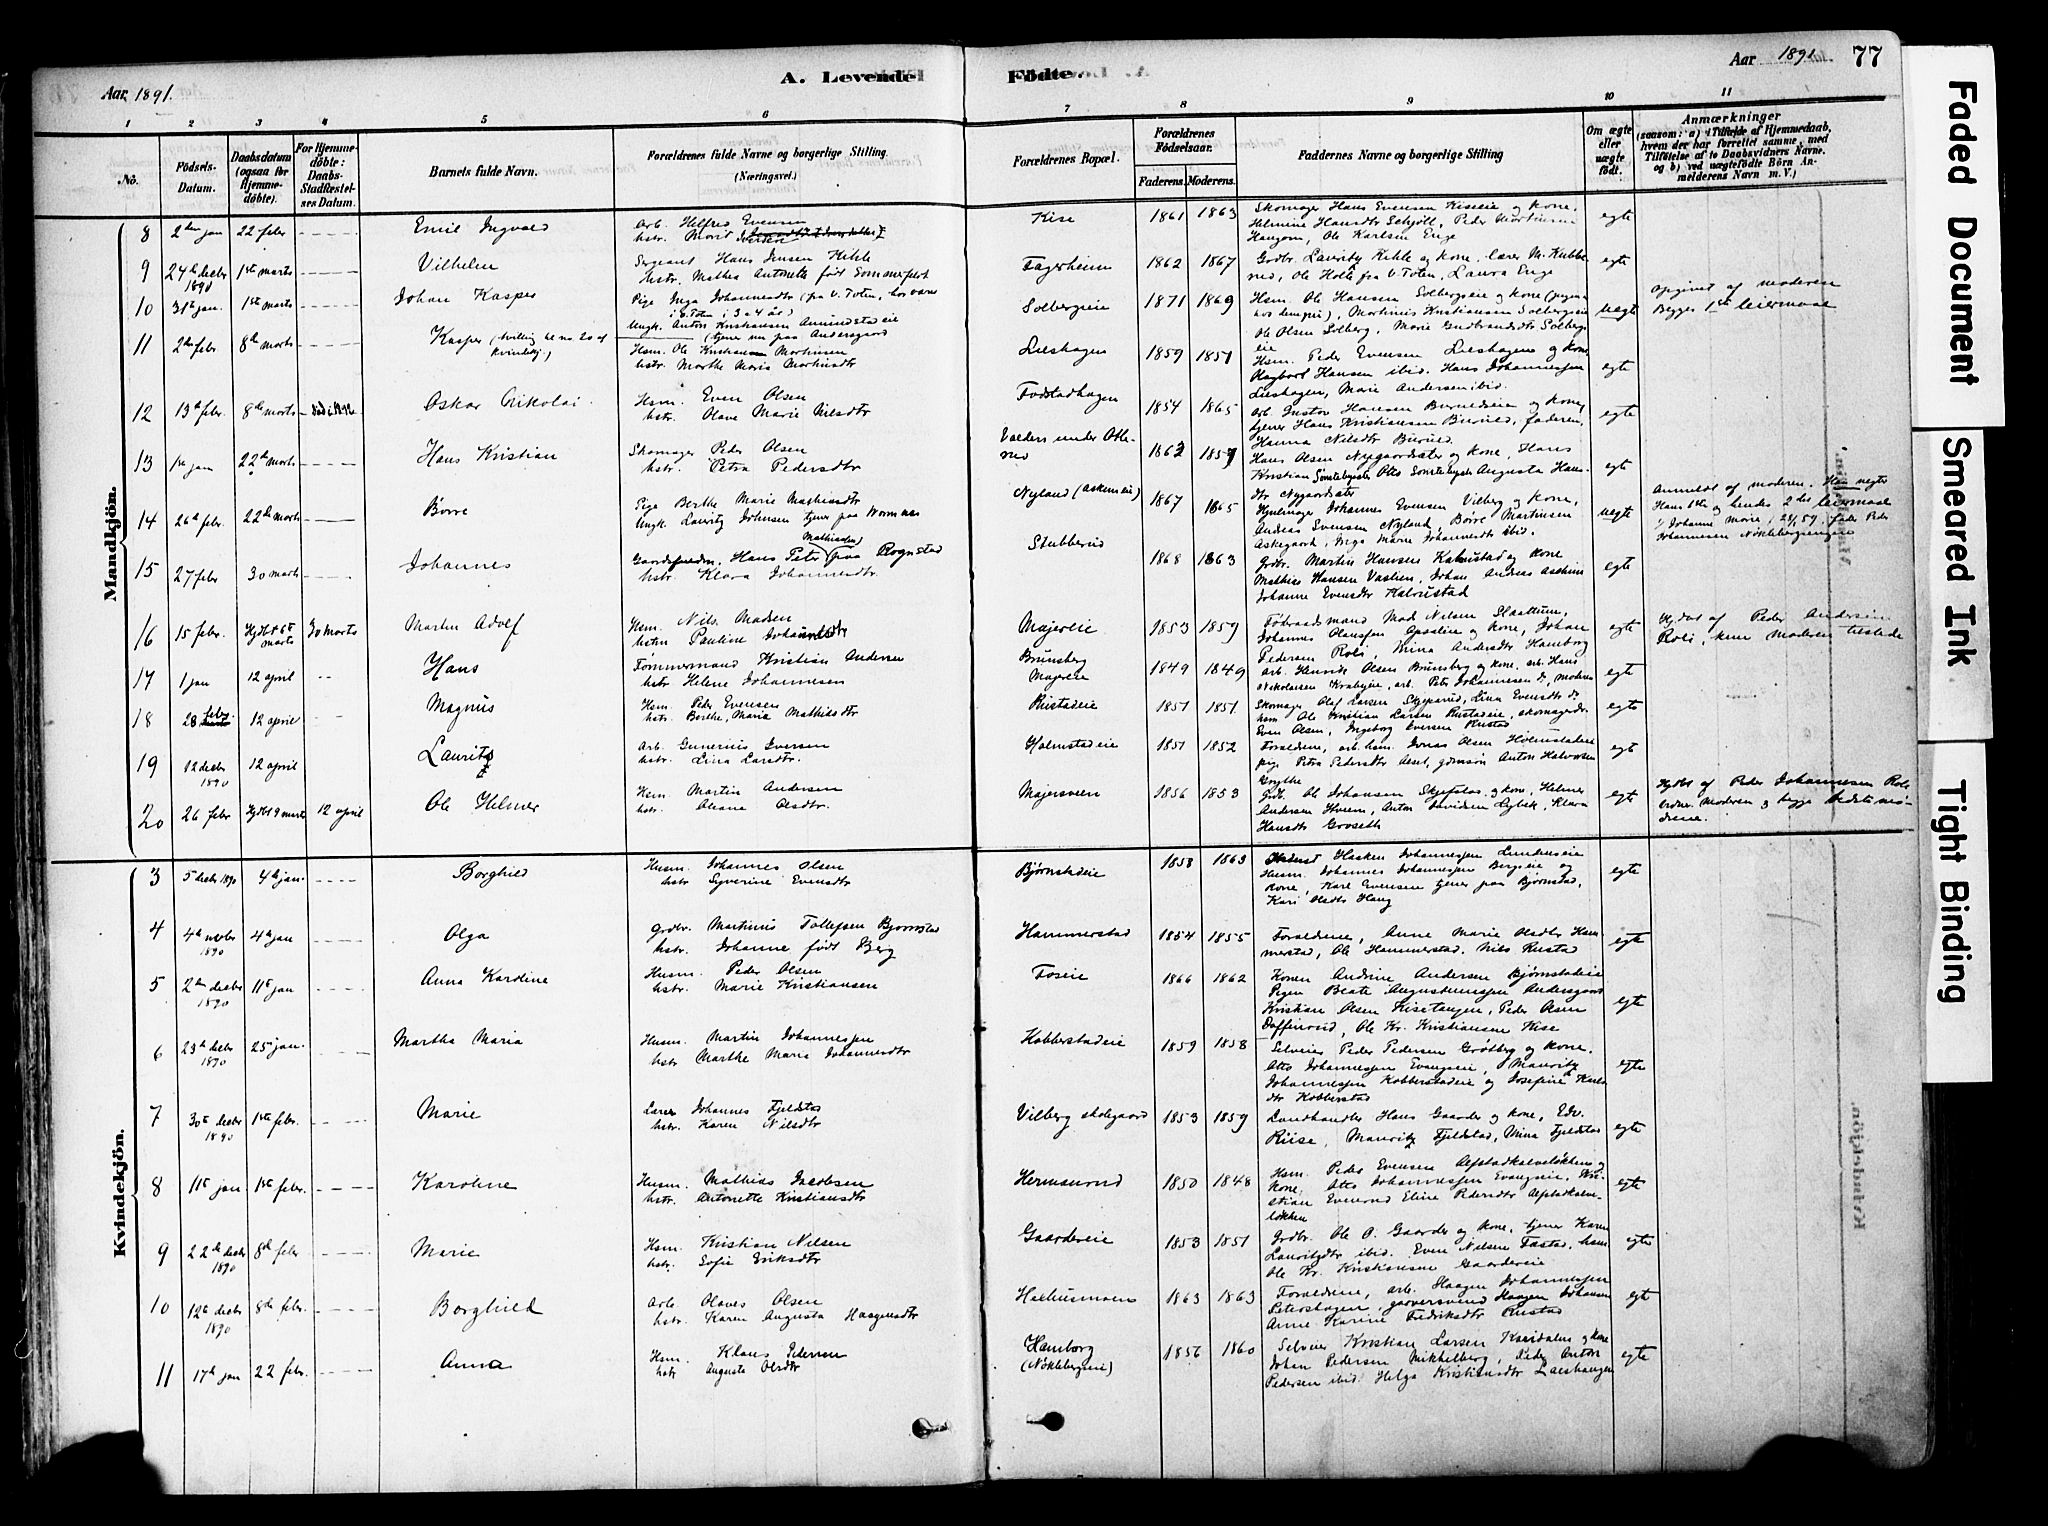 Aar 1891.
A. Levende
Fødte.
Aar 1891
77
1 2 3 4 5 6 7 8 9 10 11
Nô.
Födsels-Datum.
Daabsdatum (ogsaa for Hjemme-döbte).
For Hjemme-döbte: Daabs-Stadfæstel-ses Datum.
Barnets fulde Navn.
Forældrenes fulde Navne og borgerlige Stilling. (Næringsvei.)
Forældrenes Bopæl.
Forældrenes Födselsaar.
Faderens. Moderens.
Faddernes Navne og borgerlige Stilling
Om ægte eller uægte født.
Anmærkninger
(saasom: a) i Tilfælde af Hjemmedaab, hvem der har forrettet samme, med Tilföielse af to Daabsvidners Navne. og b) ved uægtefödte Börn Anmelderens Navn m. V.)
Mandkjön.
8 2den jan 22 febr ---- Emil Ingvald
arb. Helfred Evensen
Kise 1861 1863
Skomager Hans Evensen Kiseeie og kone,
Ole Karlsen Enge
egte
9 24de decbr 1890 1ste marts ---- Vilhelm
Sergeant Hans Jensen Kihle
hustr. Mathea Antonette født Sommerfelt
Fagerheim 1862 1867
Laura Enge
egte
10 31te jan. 1ste marts ---- Johan Kasper
Pige Inga Johannesdtr (fra V. Toten, hos være
i Ø. Toten i 3 a 4 år)
Ungk. Anton Kristiansen Amundstadeie
(tjener nu paa Andersgaard
Solbergeie 1871 1869
Hsm. Ole Hansen Solbergseie og kone
Ole Olsen Solberg, Marie Gudbrandsdtr Solberg
eie
uegte
Opgivet af moderen
Begges 1ste leiermaal
11 2den febr 8de marts ---- Kasper (tvilling til no. 20 af kvindekj.)
Hsm. Ole Kristiansen Martinsen
hstr. Marthe Maria Martinsdtr
Lieshagen 1859 1851
Hsm. Peder Evensen Lieshagen og kone
Hansen ibid. Hans Johannessen
Lieshagen, Marie Andersen ibid.
egte
12 13de febr. 8de marts Oskar Nikolai
Hsm. Even Olsen
hstr. Olave Marie Nilsdtr
Fodstadhagen 1854 1865
arb. Gustav Hansen
tjener Hans Kristiansen Bierud, faderen,
Hanna Nilsdtr Bierud.
egte
13 1ste jan 22de marts Hans Kristian
Skomager Peder Olsen
hstr. Petra Pedersdtr
1862 1857
Hans Olsen Nygaardsæter og kone, Hans
egte
14 26de febr. 22de marts ---- Børre
Pige Berthe Marie Mathiasdtr
Ungk. Lauritz Johnsen tjener paa Wormnes
Nyland (Askemeie) 1867 1865
Johannes Evensen Vilberg og kone,
Andreas Svensen Nyland, Børre Martinsen
Askegaard, Inga Marie Johannesdtr ibid.
uegte
Anmeldt af moderen. Han negter
Hans 1ste og hendes 2det leiermaal
15 27 febr 30 marts ---- Johannes
Hans Peter (Mathiesen) fraa Rognstad
hstr. Klara Johannesdtr.
Stubberud 1868 1863
Grdbr. Martin Hansen Kalrustad og kone
Mathias Hansen Vastien, Johan Andreas
Johanne Evensdtr Kalrustad
egte
16 15 febr. Hjdbt 6te marts 30 marts Martin Adolf
Hsm. Nils Madsen
hstru Pauline Johannesdtr
Majereie 1853 1859
Føderaadsmand Mad Nilsen Slaattum,
Johannes Olaussen og kone, Johan
Pedersen Roli, Mina Andersdtr Hamborg
egte
Hjdbt af Peder Andersen
Roli, kun moderen tilstede
17 1 jan 12 april -- Hans
Tømmermand Kristian Andersen
hstr Helene Johannesen
Brunsberg Majereie 1849 1849
arb. Henrik Olsen Brunsberg og kone. arb. Hans
Nikolaisen Krabyeie, arb. Peter Johannesen ds, moderen
egte
18 28 febr. 12 april --- Magnus
Hsm. Peder Evensen
hstr. Berthe Maria Mathisdtr
Rustadeie 1851 1851
Skomager Olaf Larsen Skjeperud, Lina Evensdtr ds
hsm Ole Kristian Larsen Rustadeie, skomager
Even Olsen, Ingeborg Eversen Rustad
egte
19 12 decbr 1890 12 april Laurits
Arb. Gunerius Iversen
hstr. Lina Larsdtr.
Holmstadeie 1851 1852
Forældrene, arb. hsm. Jonas Olsen Holmstadeie
pige Petra Pedersdtr Alset, gdmsøn Anton Halvorsen
egt
20 26 febr Hjdbt 9 marts 12 april Ole Helmer
Hsm. Martin Andersen
hstr. Oleane Olsdtr.
Majersveen 1856 1853
Grdb. Ole Johansen og kone, Helmer
Andersen Hveem, Anton Davidsen Lybek, Klara
Hansdtr Groseth
egte
Hjdbt af Peder Johannesen Roli
Moderen og begge bedstemø-
drene.
Kvindekjön.
3 5 decbr 1890 4de jan. ---- Borghild
Husm. Johannes Olsen
hstr Syverine Evensdtr
Bjørnstadeie 1858 1863
Haaken Johannessen Lundeneie
Husm. Johannes Johannessen Bergseie og
kone, Karl Evensen tjener paa Bjørnstad,
Kari Olsdtr Haug
egte
4 4de novbr 1890 4de jan ---- Olga
Grdbr. Martinus Tollefsen Bjørnstad
hstr. Johanne født Berg
Hammerstad 1854 1855
Forældrene, Anne Marie Olsdtr Ham
merstad, Ole Hammerstad. Nils Rustad
egte
5 2den decbr 1890 11te jan ---- Anna Karoline
Husm. Peder Olsen
hstr. Marie Kristiansen
Foseie 1866 1862
Konen Andrine Andersen Bjørnstadeie
Pigen Beate Augustinussen Andersgaard
Kristian Olsen Kisetangen, Peder Olsen
Daffinrud, Ole Kr. Kristiansen Kise
egte
6 23de decbr 1890 25 jan. ---- Martha Maria
Husm. Martin Johannessen
hstr Marthe Maria Johannesdtr
Kobberstadeie 1859 1858
Selveier Peder Pedersen Grøtberg og kone,
Otto Johannessen Evangeie, Mauritz
Johannessen Kobberstadeie og Josefine Karls
dtr Kobberstad
egte
7 30te decbr 1890 1ste febr. ---- Marie
Lærer Johannes Fjeldstad
hstr. Karen Nilsdtr
Vilberg skolegaard 1853 1859
Landhandler Hans Gaarder og kone, Edv.
Riise, Mauritz Fjeldstad, Mina Fjeldstad
egte
8 11te jan 1ste febr. ---- Karoline
Husm. Mathias Jacobsen
hstr. Antonette Kristiansdtr
Hermanrud 1850 1848
Hsm. Peder Evensen Alfstadkalveløkken og
kone, Otto Johannessen Evangeie, Kri-
stian Evenrud Eline Pedersdtr Alfstadkalve-
løkken
egte
9 22de decbr 1890 8de febr ---- Marie
Hsm. Kristian Nilsen
hstr. Sofie Eriksdtr
Gaardereie 1853 1851
Grdbr. Ole O. Gaarder og kone, tjener Karen
Lauritzdtr ibid. Even Nilsen Fastad, hsm
Ole Kr. Kristiansen Gaardereie
egte
10 12te decbr 1890 8de febr. ---- Borghild
Arb Olaves Olsen
hstr. Karen Augusta Haagensdtr
Haxhusmoen 1863 1863
Forældrene, arb. Haagen Johannessen
Petershagen, garversvend Haagen Johansen
Anne Karine Fredriksdtr Rustad
egte
11 17de jan 22 febr. Anna
Hsm. Klaus Pedersen
hstr Augusta Olsdtr
Hamborg (Nøklebergeie) 1856 1860
Selveier Kristian Larsen Karidalen og kone
Johan Pedersen Mikkelberg, Peder Anton
Pedersen ibid. Helga Kristiansdtr Laeshaugen
egte
Faded Document
Smeared Ink
Tight Binding